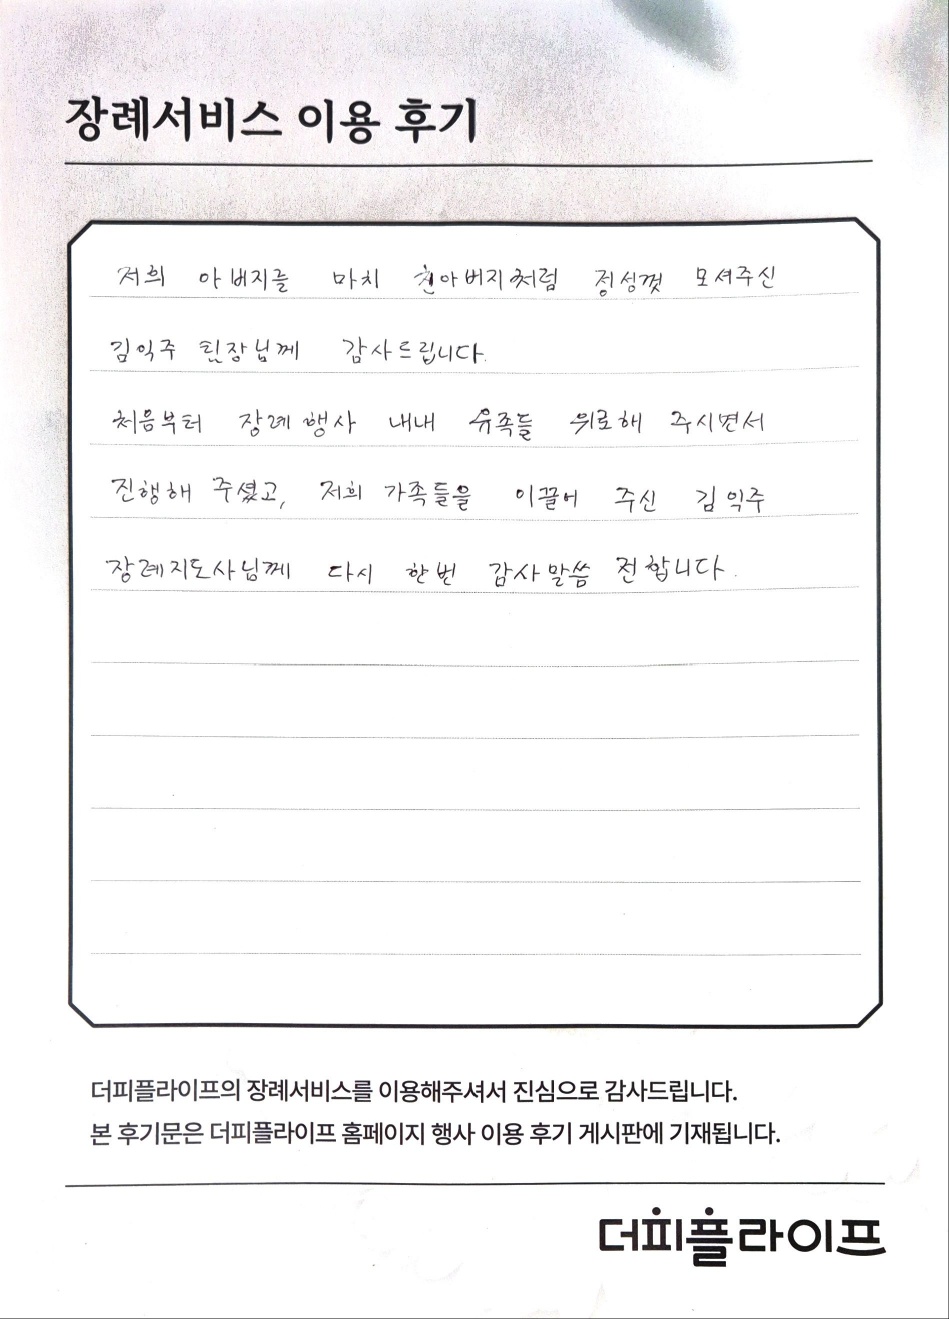 장례서비스 이용 후기
저희 아버지를 마치 친아버지처럼 정성껏 모셔주신
김익주 팀장님께 감사드립니다.
처음부터 장례 행사 내내 유족들 위로해 주시면서
진행해 주셨고, 저희 가족들을 이끌어 주신 김익주
장례지도사님께 다시 한번 감사말씀 전합니다.
더피플라이프의 장례서비스를 이용해주셔서 진심으로 감사드립니다.
본 후기문은 더피플라이프 홈페이지 행사 이용 후기 게시판에 기재됩니다.
더피플라이프